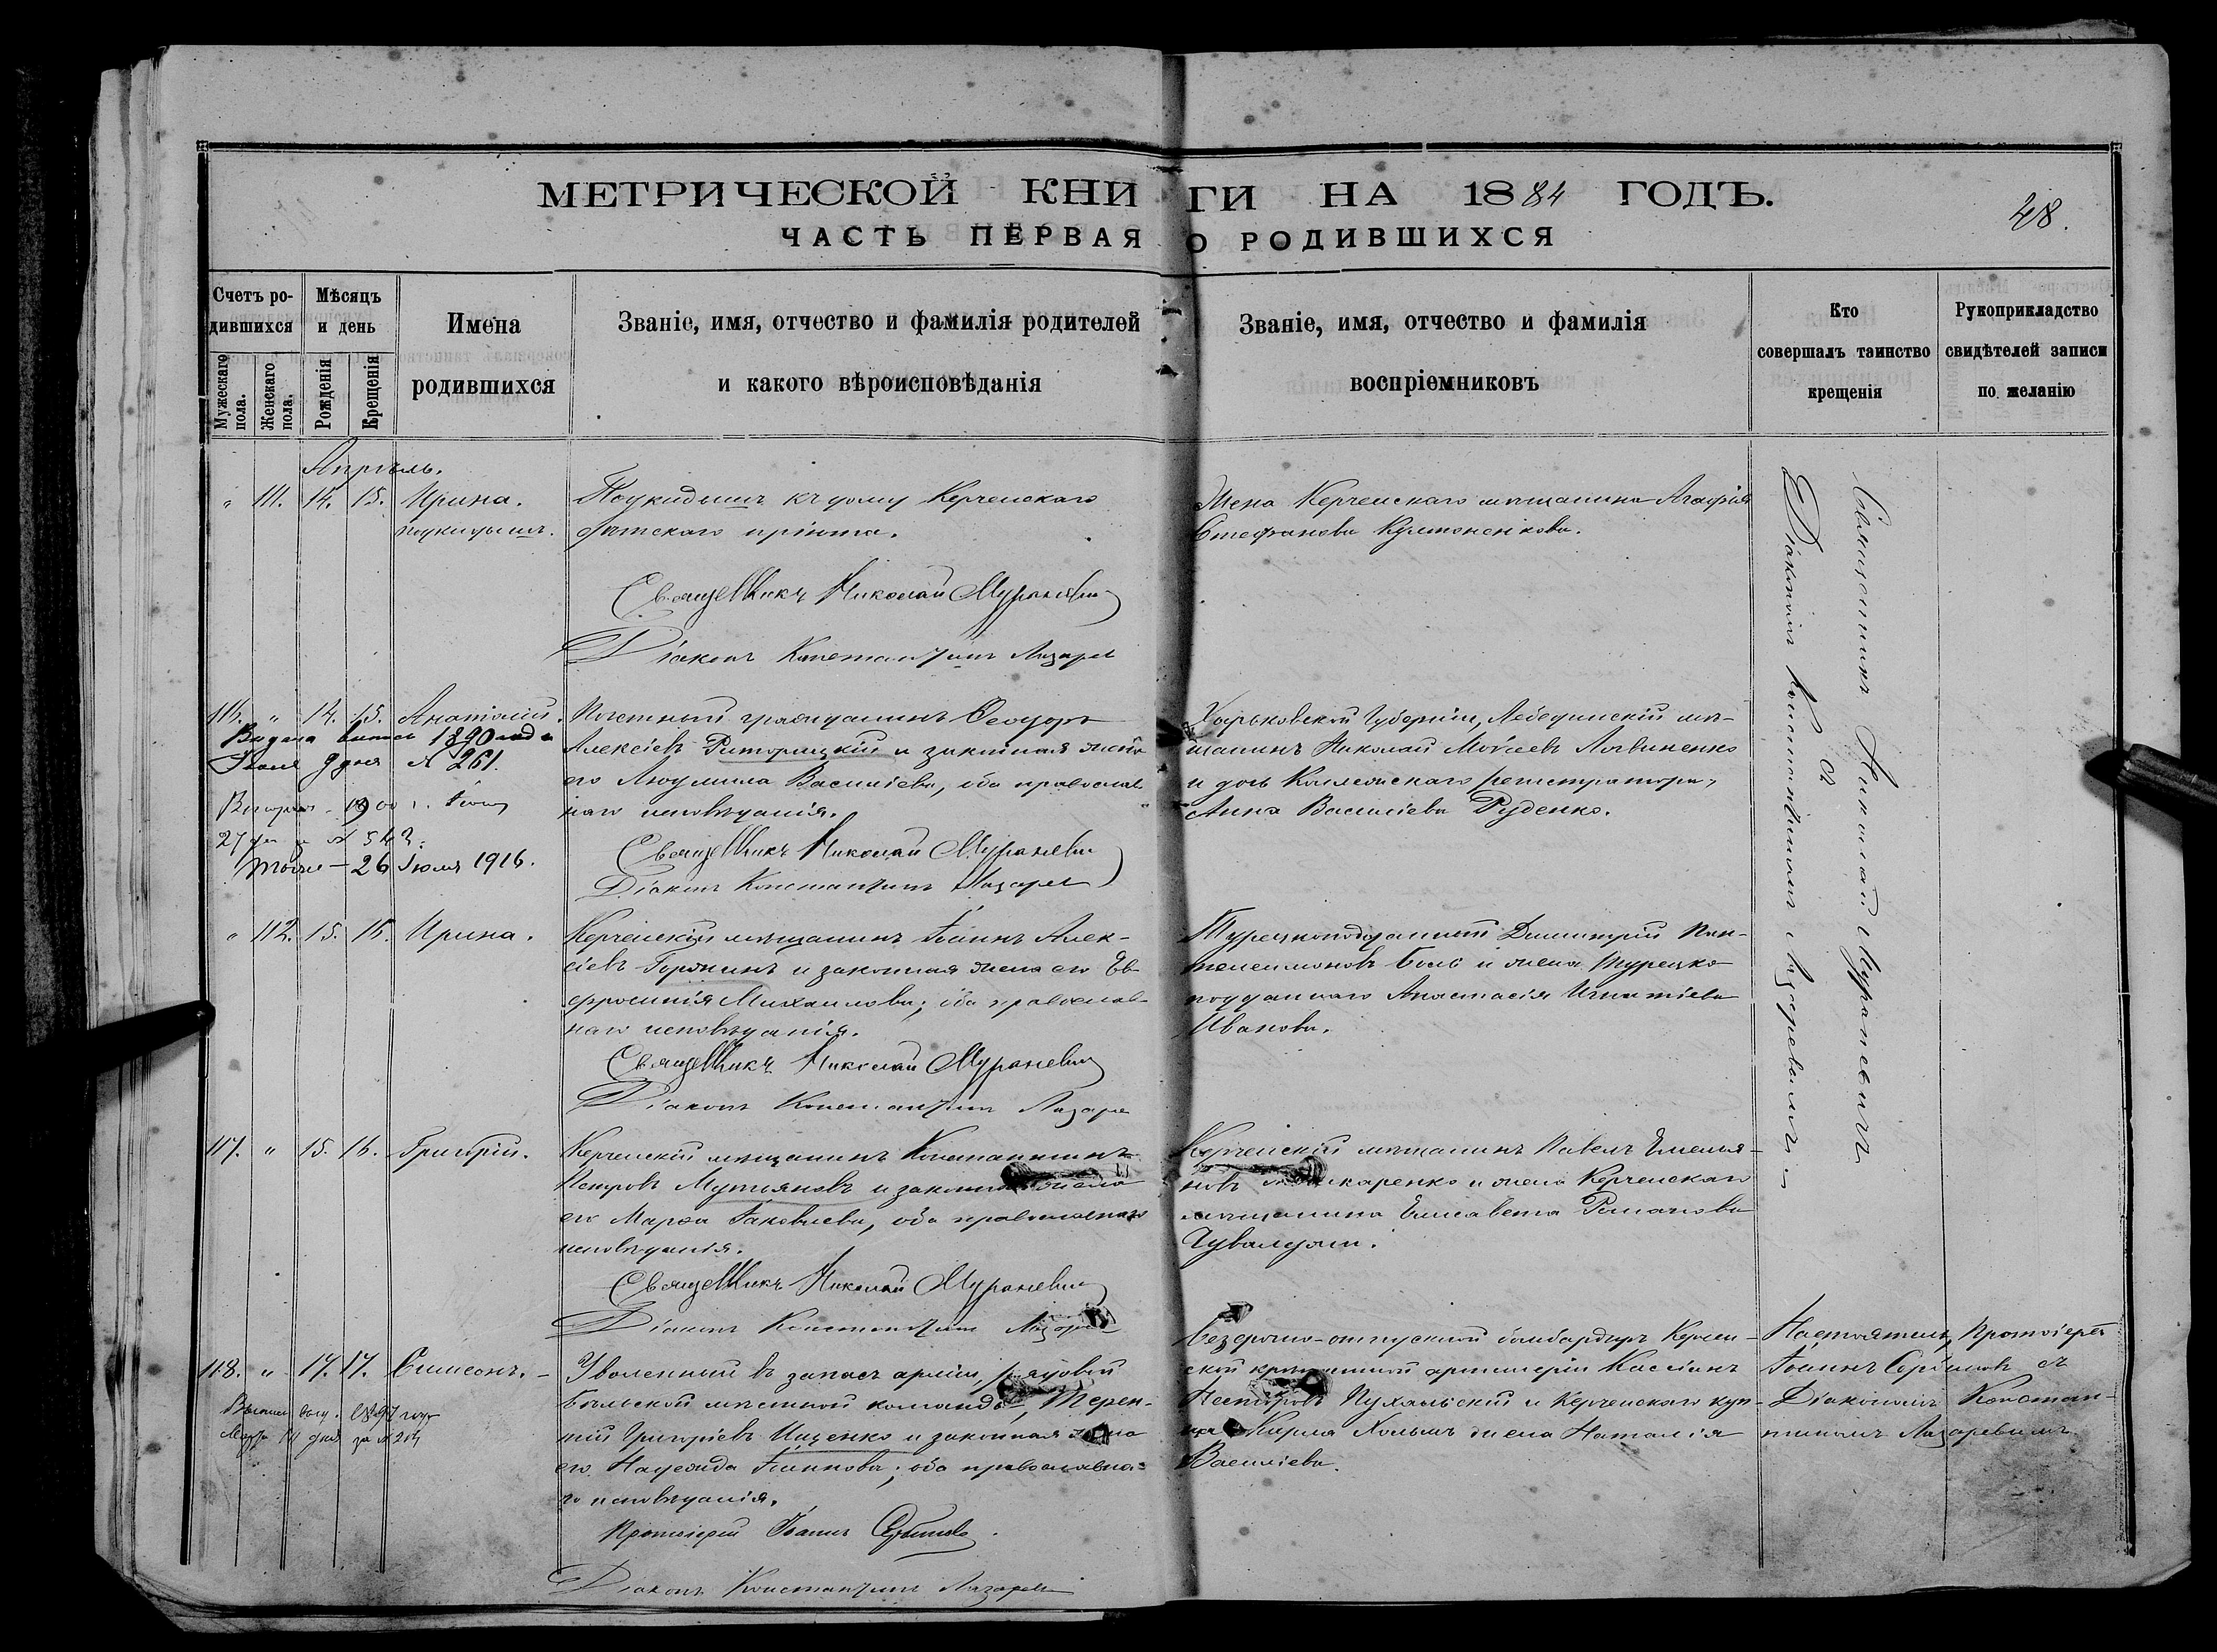 МЕТРИЧЕСКОЙ КНИГИ НА 1884 ГОДЪ.
48.
ЧАСТЬ ПЕРВАЯ О РОДИВШИХСЯ
Счетъ родившихся
Мужескаго пола.
Женскаго пола.
Мѣсяцъ и день
Рожденія
Крещенія
Имена
родившихся
Званіе, имя, отчество и фамилія родителей
и какого вѣроисповѣданія
Званіе, имя, отчество и фамилія
воспріемниковъ
Кто
совершалъ таинство
крещенія
Рукоприкладство
свидѣтелей записи
по желанію
Апрѣль.
" 111. 14. 15. Ирина.
подкидышъ.
Подкидышъ къ дому Керченскаго
дѣтскаго пріюта.
Священникъ Николай Мураневич
Діаконъ Константинъ Лазарев
Жена Керченскаго мѣщанина Агафія
Стефанова
Священникъ Николай Мураневичъ
съ
Діакономъ Константиномъ Лазаревымъ
116. " 14. 15. Анатолій.
Выдана 1890 года
Іюня 9 дня № 261.
1900 г.
27 № 542.
Тоже — 26 Іюля 1916.
Почетный гражданинъ Ѳеодоръ
Алексіевъ и законная жена
его Людмила Василіева, оба православ-
наго исповѣданія.
Священникъ Николай Мураневич
Діаконъ Константинъ Лазарев
Харьковской Губерніи, Лебединскій мѣ-
щанинъ Николай Моѵсеевъ Логвиненко
и дочь Коллежскаго регистратора,
Анна Василіева Руденко.
" 112. 15. 16. Ирина.
Керченскій мѣщанинъ Іоаннъ Алек-
сіевъ и законная жена его Ев-
фросинія Михаилова; оба православ-
наго исповѣданія.
Священникъ Николай Мураневич
Діаконъ Константинъ Лазарев
Турецкоподданный Димитрій Пан-
телеимоновъ и жена Турецко-
подданнаго Анастасія Игнатіева
Иванова.
117. " 15. 16. Григорій.
Керченскій мѣщанинъ Константинъ
Петровъ и законная жена
его Марѳа Іаковлева, оба православнаго
исповѣданія.
Священникъ Николай Мураневич
Діаконъ Константинъ Лазарев
Керченскій мѣщанинъ Павелъ Емелья-
новъ и жена Керченскаго
мѣщанина Елисавета Романова
118. " 17. 17. Симеонъ. -
1897 году
Марта дня за №
Уволенный въ запасъ арміи, рядовой
Бѣльской мѣстной команды, Терен-
тій Григоріевъ Ищенко и законная жена
его Надежда Іоаннова; оба православна-
го исповѣданія.
Протоіерей Іоаннъ
Діаконъ Константинъ Лазарев
Безсрочно-отпускной бомбардиръ Керчен-
ской крѣпостной артиллеріи Кассіанъ
Несторовъ и Керченскаго куп-
ца жена Наталія
Василіева.
Настоятель, Протоіерей
Іоаннъ съ
Діакономъ Констан-
тиномъ Лазаревымъ